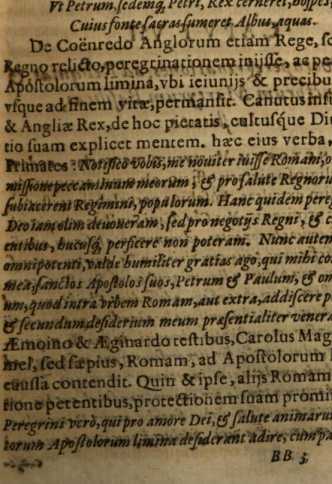 Vt Petrum, sedemq́; Petri, Rex cerneret, hospes,
Cuius fonte sacras sumeret Albus, aquas.
De Coënredo Anglorum etiam Rege, se
Regno relicto, peregrinationem inijsse, ac pe
Apostolorum limina, vbi ieiunijs & precibu
vsque ad finem vitæ, permansit. Canutus insi
& Angliæ Rex, de hoc pietatis, cultusque Diu
tio suam explicet mentem. hæc eius verba,
Primates: Notifico vobis, me nouiter iuisse Romam, o
missione peccaminum meorum; & pro salute Regnoru
subiacerent Regimini, populorum. Hanc quidem pere
Deo iam olim deuoueram, sed pro negotijs Regni, & c
entibus, hucusq́; perficere non poteram. Nunc auten
omnipotenti, valde humiliter gratias ago, qui mihi co
mea, sanctos Apostolos suos, Petrum & Paulum, & on
um, quod intra vrbem Romam, aut extra, addiscere p
& secundum desiderium meum præsentialiter venera
Æmoino & Æginardo testibus, Carolus Mag
mel, sed sæpius, Romam, ad Apostolorum l
caussa contendit. Quin & ipse, alijs Romam
tione petentibus, protectionem suam promit
Peregrini verò, qui pro amore Dei, & salute animarum
torum Apostolorum limina desiderant adire, cum pa
BB 3,